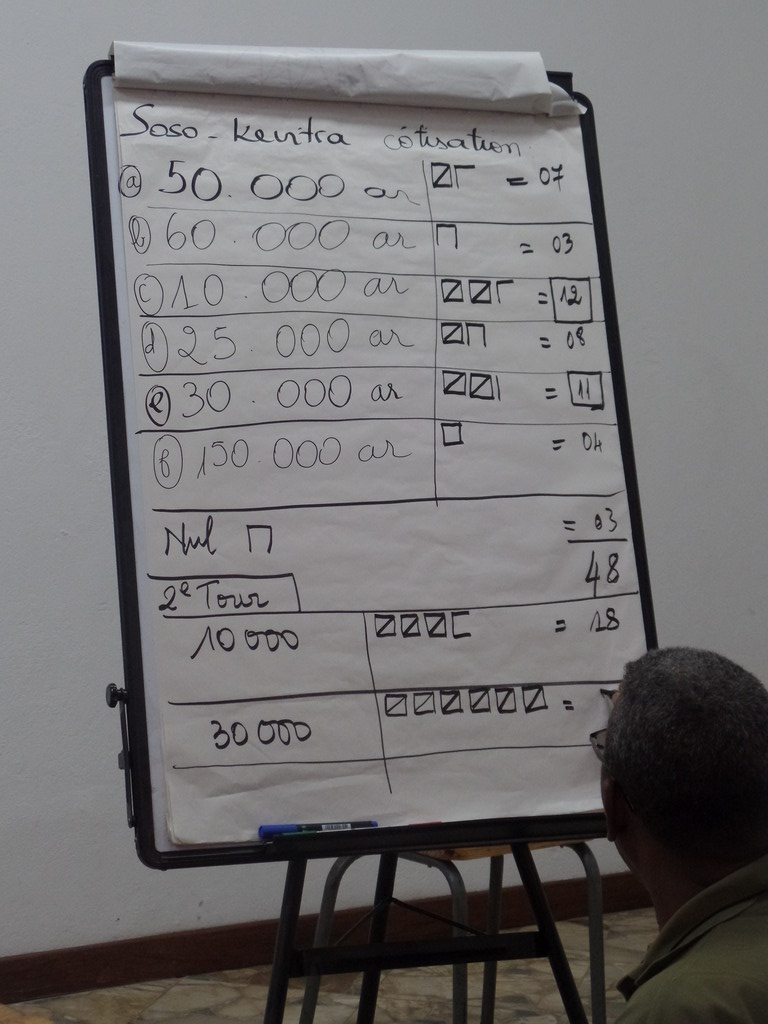 Soso - kevitra côtisation
a 50.000 ar = 07
b 60.000 ar = 03
c 10.000 ar = 12
d 25.000 ar = 08
e 30.000 ar = 11
f 150.000 ar = 04
Nul = 03
48
2e Tour
10 000 = 18
30 000 =